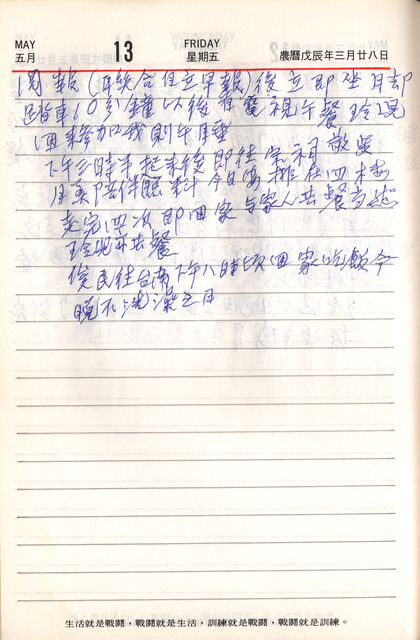 MAY
五月
13
FRIDAY
星期五
農曆戊辰年三月廿八日
閱報(聯合自立早報)後立即坐自却
踏車10分鐘以後看電視午餐玲琨
回來參加我則午睡
下午三時半起來後即往家祠散步
月英陪伴 今日安排在四樓
走完四次即回家與家人共餐當然
玲琨亦共餐
俊民往台南下午八時頃回家吃飯今
晚不洗澡之日
生活就是戰鬪,戰鬪就是生活,訓練就是戰鬪,戰鬪就是訓練。